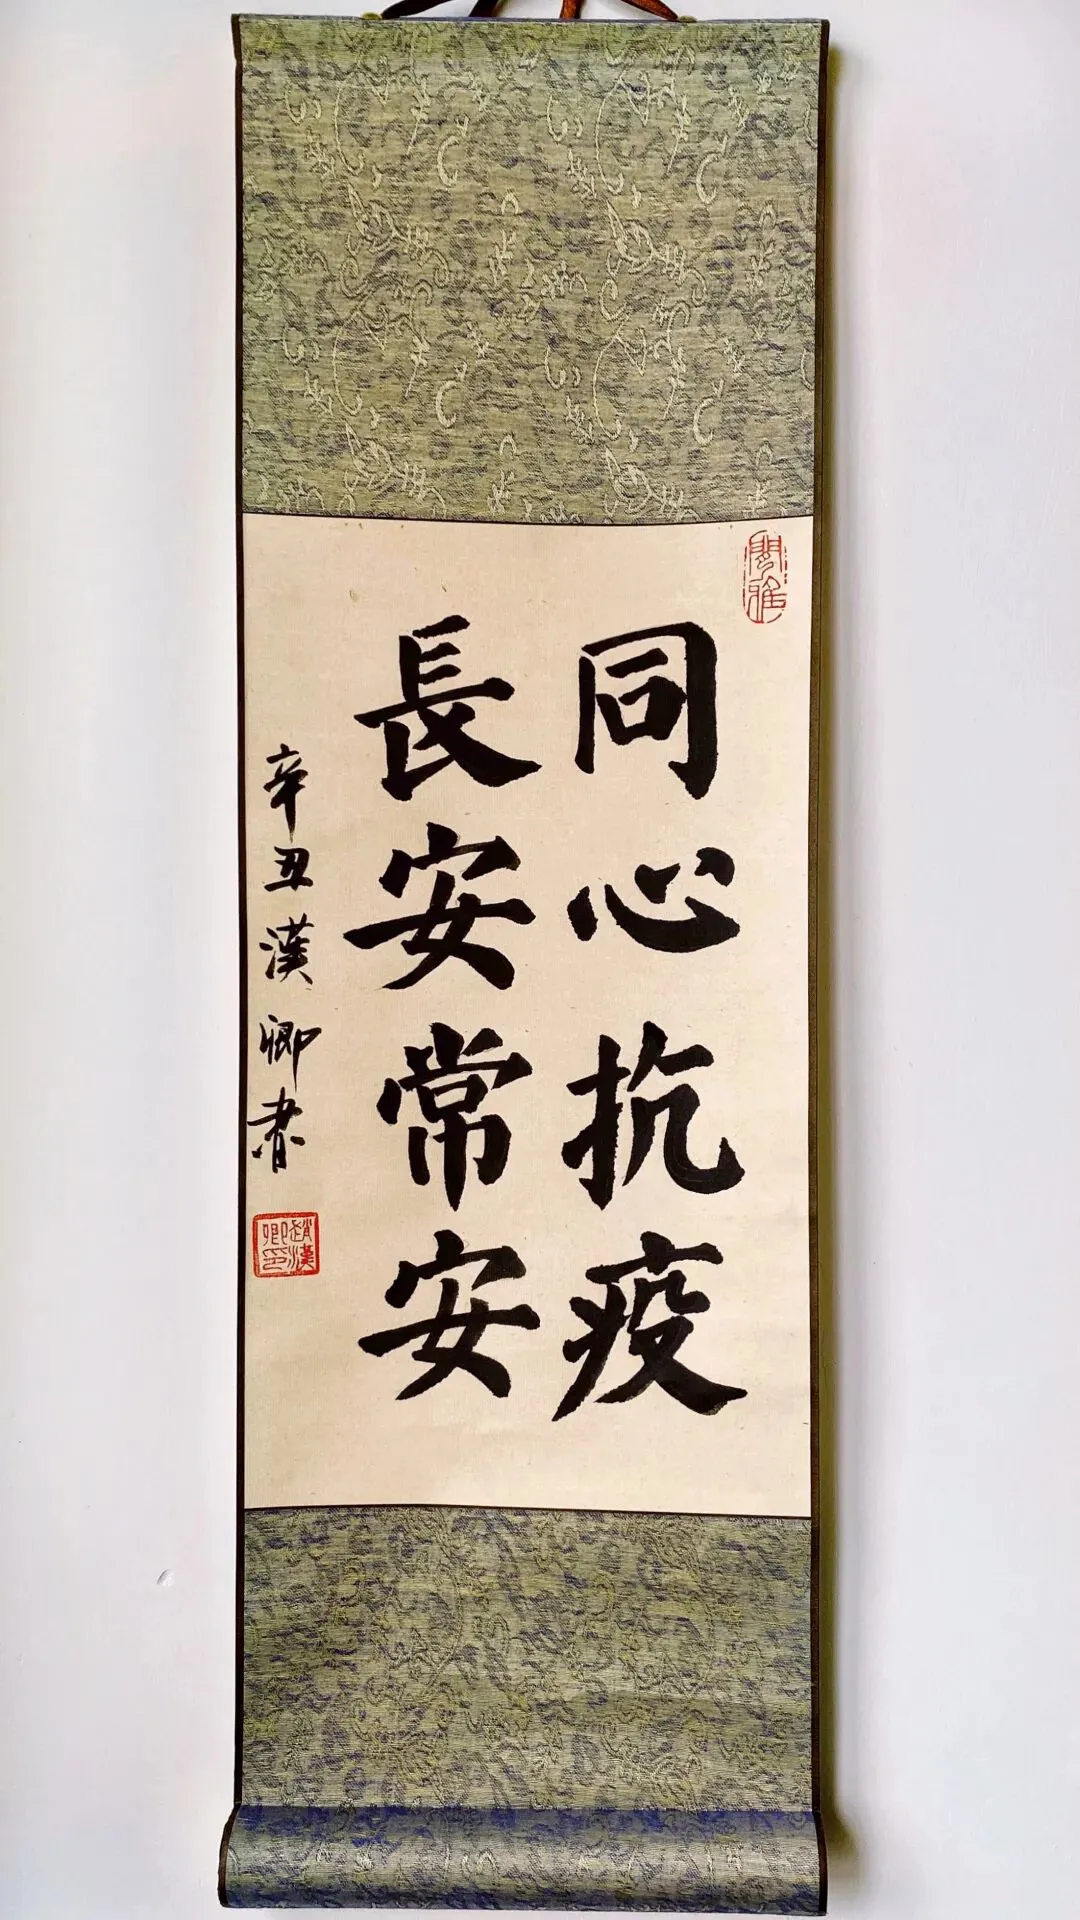 同心抗疫
長安常安
辛丑漢卿書
趙漢卿印